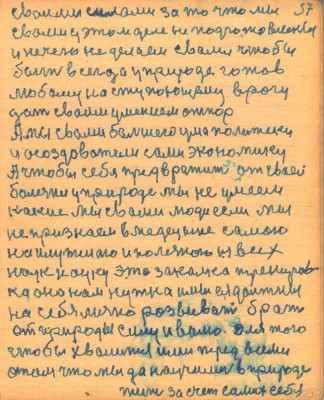 своими силами за то что мы 57
своим этом деле не подготовлены
и нечего не делаем своим чтобы
быть всегда у природе готов
любому наступающему врагу
дать своим умением отпор
А мы с вами большего ума политеки
и создователи сами экономику
А чтобы себя предвратить от своей
болезни у природе мы не умеем
какие мы с вами люди если мы
не признаем в медецыне самою
на и нужную и полезною из всех
наук науку это закалка тренировка
она нам нужна мы ея должны
на себя лично розвиват брат
от природы силу и волю для того
чтобы хвалится ими пред всеми
о том что мы да научились в природе
жить за счет самих себя